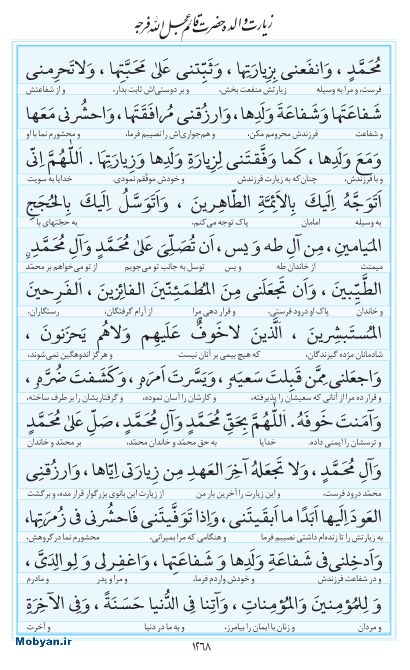 زیارت والده حضرت قائم عجل الله فرجه
مُحَمَّدٍ، وَانفَعنى بِزِيارَتِها، وَثَبِّتنى عَلىٰ مَحَبَّتِها، وَلاتَحرِمنى
فرست، و مرا به وسیله زیارتش منفعت بخش، و بر دوستی‌اش ثابت بدار، و از شفاعتش
شَفاعَتَها وَشَفاعَةَ وَلَدِها، وَارزُقنى مُرافَقَتَها، وَاحشُرنى مَعَها
و شفاعت فرزندش محرومم مکن، و هم‌جواری‌اش را نصیبم فرما، و محشورم نما با او
وَمَعَ وَلَدِها، كَما وَفَّقتَنى لِزِيارَةِ وَلَدِها وَزِيارَتِها. اَللّهُمَّ اِنّى
و با فرزندش، چنان‌که به زیارت فرزندش و خودش موفّقم نمودی. خدایا به سویت
اَتَوَجَّهُ اِلَيكَ بِالاَئِمَّةِ الطّاهِرينَ، وَاَتَوَسَّلُ اِلَيكَ بِالحُجَجِ
به وسیله امامان پاک توجه می‌کنم، به حجّتهای با
المَيامينَ، مِن آلِ طه وَ يس، اَن تُصَلِّىَ عَلىٰ مُحَمَّدٍ وَآلِ مُحَمَّدٍ،
میمنت از خاندان طه و یس توسل به جانب تو می‌جویم از تو می‌خواهم بر محمّد
الطَّيِّبينَ، وَاَن تَجعَلَنى مِنَ المُطمَئِنّينَ الفائِزينَ، اَلفَرِحينَ
و خاندان پاک او درود فرستی، و قرار دهی مرا از آرام گرفتگان، رستگاران،
المُستَبشِرينَ، اَلَّذينَ لاخَوفٌ عَلَيهِم وَلاهُم يَحزَنونَ،
شادمانان مژده گیرندگان، که هیچ بیمی بر آنان نیست و هرگز اندوهگین نمی‌شوند،
وَاجعَلنى مِمَّن قَبِلتَ سَعيَهُ، وَيَسَّرتَ اَمرَهُ، وَكَشَفتَ ضُرَّهُ،
و قرار ده مرا از آنانی که سعیشان را پذیرفته، و کارشان را آسان نموده، و گرفتاریشان را برطرف ساخته،
وَآمَنتَ خَوفَهُ. اَللّهُمَّ بِحَقِّ مُحَمَّدٍ وَآلِ مُحَمَّدٍ، صَلِّ عَلىٰ مُحَمَّدٍ
و ترسشان را ایمنی داده. خدایا به حق محمّد و خاندان محمّد، بر محمّد و خاندان
وَآلِ مُحَمَّدٍ، وَلا تَجعَلهُ آخِرَ العَهدِ مِن زِيارَتى اِيّاها، وَارزُقنِى
محمّد درود فرست، و این زیارت را آخرین بار من از زیارت این بانوی بزرگوار قرار مده، و برگشت
العَودَ اِلَيها اَبَدًا ما اَبقَيتَنى، وَاِذا تَوَفَّيتَنى فَاحشُرنى فى زُمرَتِها،
به زیارتش را تا زنده‌ام داشتی نصیبم فرما و هنگامی که مرا بمیرانی، محشورم نما در گروهش،
وَاَدخِلنى فى شَفاعَةِ وَلَدِها وَ شَفاعَتِها، وَاغفِرلى وَ لِوالِدَىَّ،
و در شفاعت فرزندش و خودش واردم فرما، و مرا و پدر و مادرم
وَ لِلمُؤمِنينَ وَالمُؤمِناتِ، وَآتِنا فِى الدُّنيا حَسَنَةً، وَفِى الآخِرَةِ
و مردان و زنان با ایمان را بیامرز، و به ما در دنیا و آخرت
۱۲۶۸
Mobyan.ir